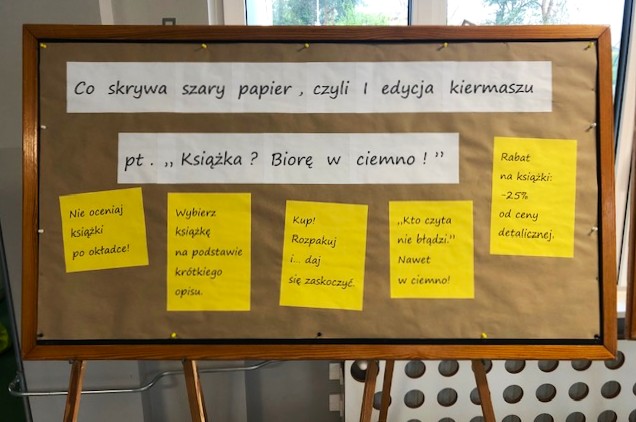 Co skrywa szary papier, czyli I edycja kiermaszu
pt. „Książka? Biorę w ciemno!”
Nie oceniaj
książki
po okładce!
Wybierz
książkę
na podstawie
krótkiego
opisu.
Kup!
Rozpakuj
i... daj
się zaskoczyć.
„Kto czyta
nie błądzi.”
Nawet
w ciemno!
Rabat
na książki:
-25%
od ceny
detalicznej.